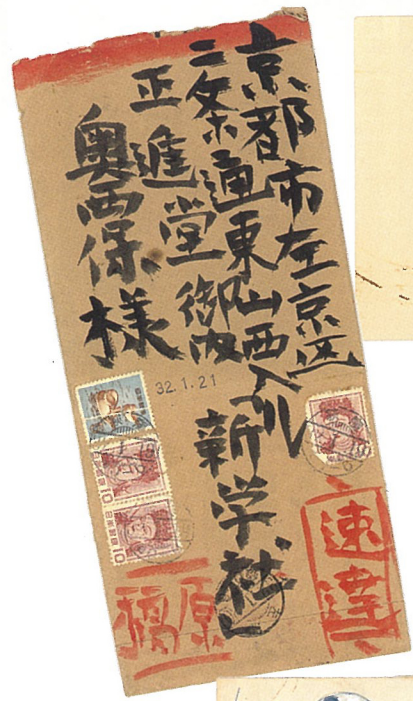 京都市左京区
二条通東山西入ル
新学社
正進堂御内
奥西保様
32.1.21
速達
原稿